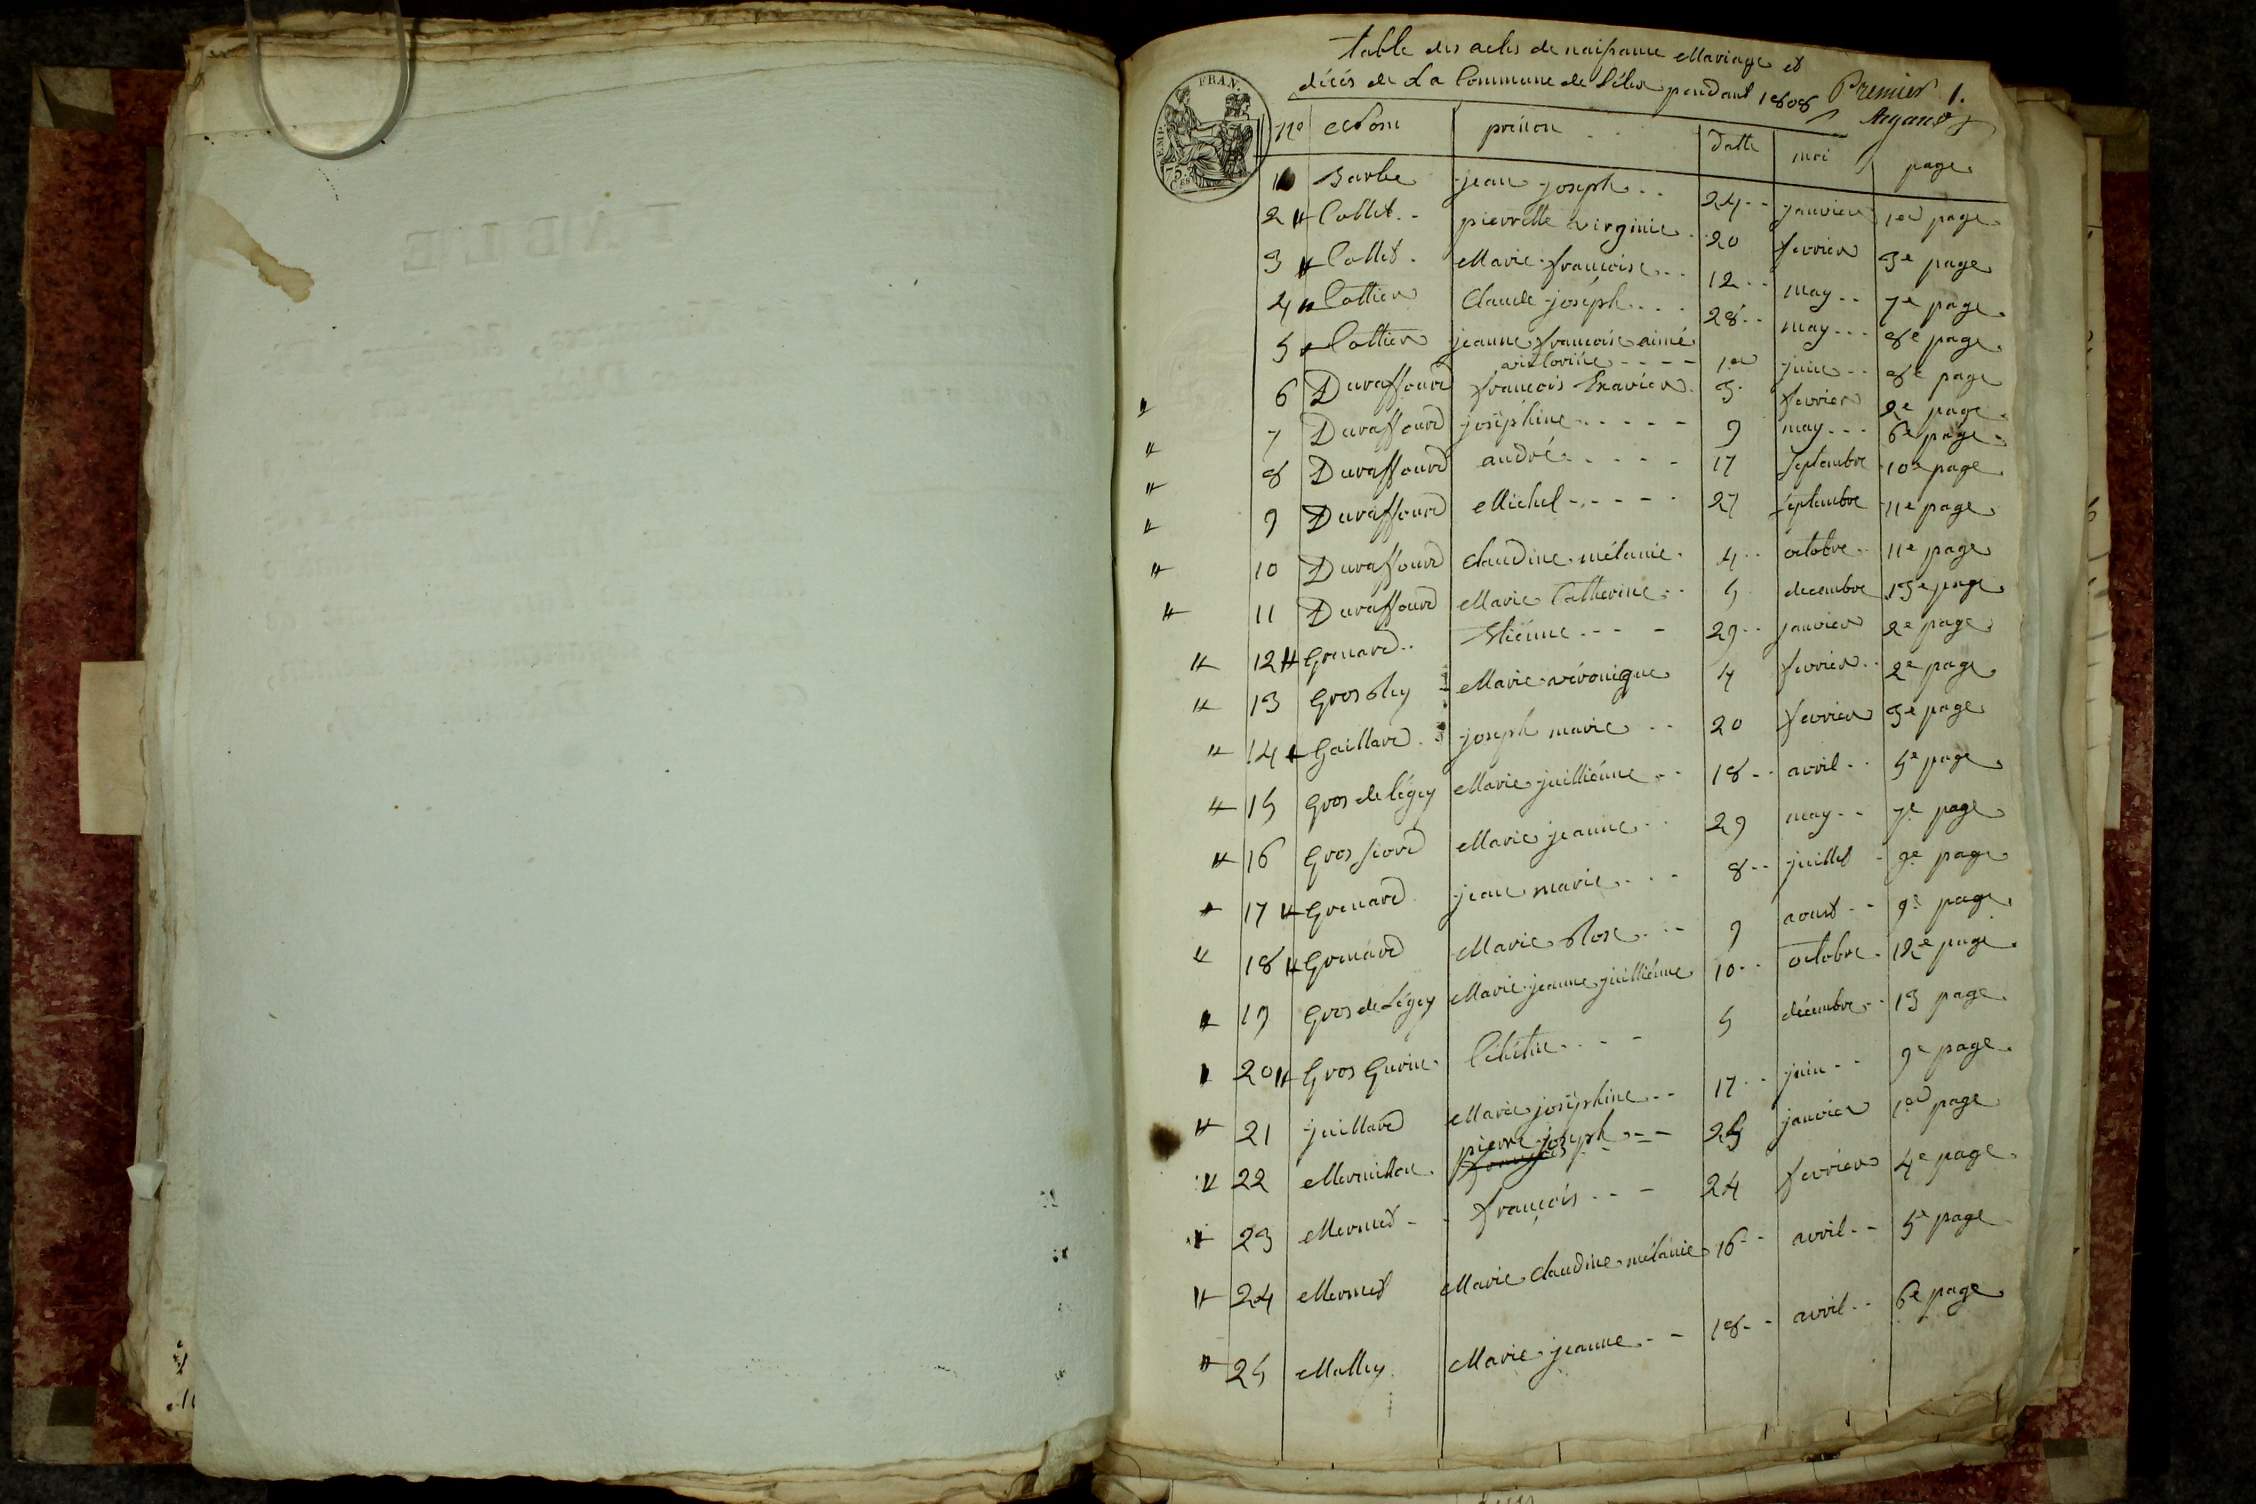 table des actes de naissance Mariage et
décés de La Commune de Lélex pendant 1808
Premier 1.
FRAN.
EMP.
75. C.
no Nom prénom datte moi page
1 Barbe jean joseph 24 janvier 1er page
2 Collet pierrette virginie 20 fevrier 3e page
3 Collet Marie françoise 12 may 7e page
4 Cottier Claude joseph 28 may 8e page
5 Cottier jeanne françoise aimé
victorine 1er juin 8e page
6 Duraffourd françois Exavier 3 fevrier 2e page
7 Duraffourd joséphine 9 may 6e page
8 Duraffourd andré 17 septembre 10e page
9 Duraffourd Michel 27 septembre 11e page
10 Duraffourd Claudine mélanie 4 octobre 11e page
11 Duraffourd Marie Catherine 5 decembre 13e page
12 Grenard Etiénne 29 janvier 2e page
13 Grosrey Marie véronique 4 fevrier 2e page
14 Gaillard joseph marie 20 fevrier 3e page
15 Gros de légey Marie juilliénne 18 avril 5e page
16 Gros fiord Marie jeanne 29 may 7e page
17 Grenard jean marie 8 juillet 9e page
18 Grenard Marie Rose 9 aoust 9e page
19 Gros de Légey Marie jeanne juilliénne 10 octobre 12e page
20 Gros Gurin Céléstine 5 décembre 13 page
21 juillard Marie joséphine 17 juin 9e page
22 Mermillon pierre joseph 25 janvier 1er page
23 Mermet françois 24 fevrier 4e page
24 Mermet Marie Claudine mélanie 16 avril 5e page
25 Malley Marie jeanne 18 avril 6e page
TABLE